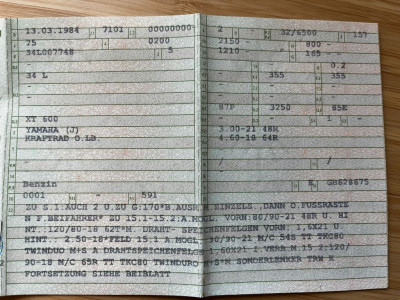 13.03.1984 7101 00000000- 2 32/6500 157
75 0200 2150 - 800 -
34L007748 5 1210 - P 165 - -
- - 0.2
34 L - - 355 355
- - - - -
- - 87P 3250 85E
- - - 1 -
XT 600
YAMAHA (J) 3.00-21 48R
KRAFTRAD O.LB. 4.60-18 64R
- -
- /
- /
Benzin E GB628675
0001 - 591
ZU S.1.AUCH 2 U.ZU G:170*B.AUSR.M EINZELS.,DANN O.FUSSRASTE
N F.BEIFAHRER* ZU 15.1-15.2:A.MOGL. VORN:80/90-21 48R U. HI
NT.:120/80-18 62T*M. DRAHT- SPEICHENFELGEN VORN: 1,6X21 U
HINT.: 2.50-18*FELD 15.1 A.MOGL. 90/90-21 M/C 54S TT TKC80
TWINDUO M+S A.DRAHTSPEICHENFELGE 1,60X21 I.VERB.M.15.2:120/
90-18 M/C 65R TT TKC80 TWINDURO M+S*M SONDERLENKER TRW
FORTSETZUNG SIEHE BEIBLATT